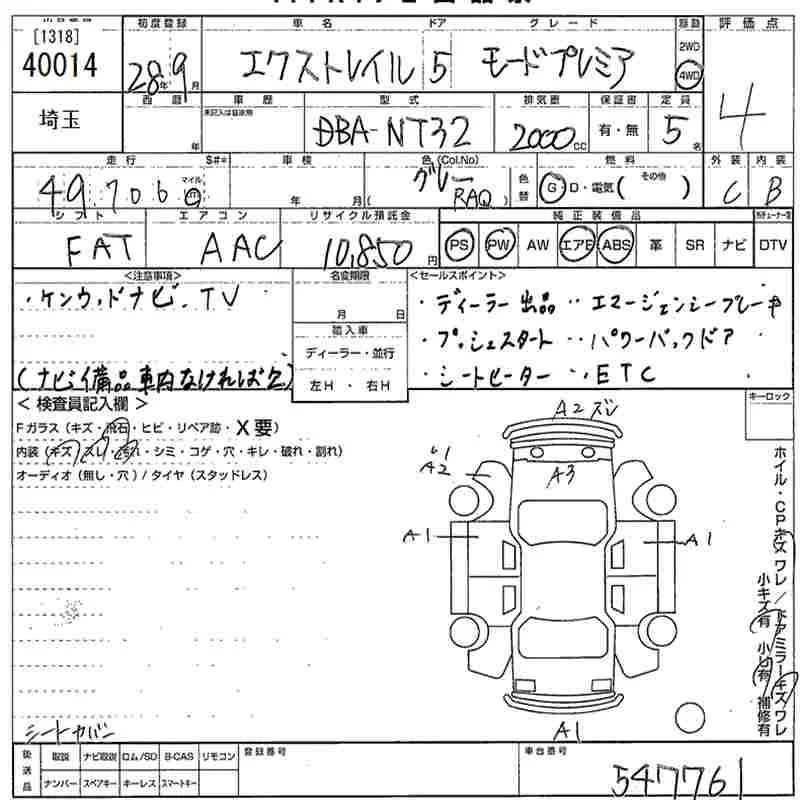 [1318]
40014
初度登録 車名 ドア グレード 駆動 評価点
28年9月 エクストレイル 5 モードプレミア 2WD 4WD 4
埼玉
西暦 車歴 型式 排気量 保証書 定員
年 未記入は自家用 DBA-NT32 2000cc 有・無 5名
走行 S#* 車検 色(Col.No) 燃料 外装 内装
49,706 マイル 年 月 グレー (RAQ) 色替 G D・電気( その他 ) C B
シフト エアコン リサイクル預託金 純正装備品
FAT AAC 10,850円 PS PW AW エアB ABS 革 SR ナビ DTV
<注意事項> 名変期限 <セールスポイント>
・ケンウッドナビ.TV 月 日 ・ディーラー出品・・エマージェンシーブレーキ
輸入車 ・プッシュスタート・パワーバックドア
ディーラー・並行
(ナビ備品車内なければ欠) 左H・右H ・シートヒーター・・ETC
< 検査員記入欄 > キーロック
Fガラス(キズ・飛石・ヒビ・リペア跡・X要)
内装(キズ・スレ・汚れ・シミ・コゲ・穴・キレ・破れ・割れ)
オーディオ(無し・穴)/タイヤ(スタッドレス)
A2ズレ
A2
A3
A1 A1
A1
ホイル・CPキズ ワレ/ドアミラーキズワレ
小キズ有 小凹有 補修有
シートカバー
後送品 取説 ナビ取説 ロム/SD B-CAS リモコン 登録番号 車台番号
ナンバー スペアキー キーレス スマートキー 547761